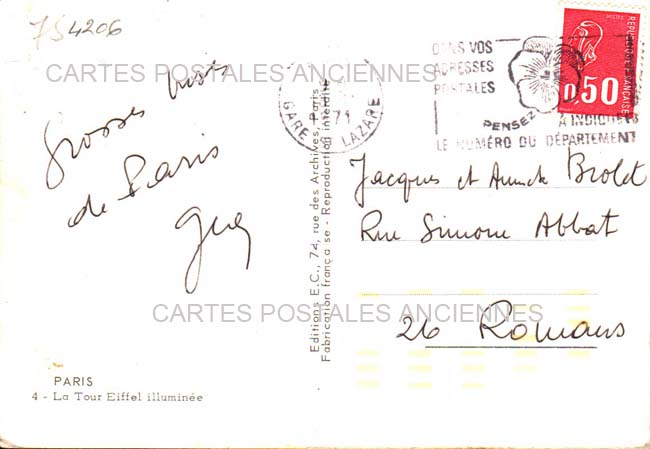 754206
DANS VOS
ADRESSES
POSTALES
PENSEZ
A INDIQUER
LE NUMÉRO DU DÉPARTEMENT
GARE LAZARE
71
0,50
POSTES
REPUBLIQUE FRANÇAISE
CARTES POSTALES ANCIENNES
Grosses bises
de Paris
Guy
Editions E.C., 74, rue des Archives, Paris
Fabrication française - Reproduction interdite
Jacques et Annick Brolet
Rue Simone Abbat
26 Romans
CARTES POSTALES ANCIENNES
PARIS
4 - La Tour Eiffel illuminée